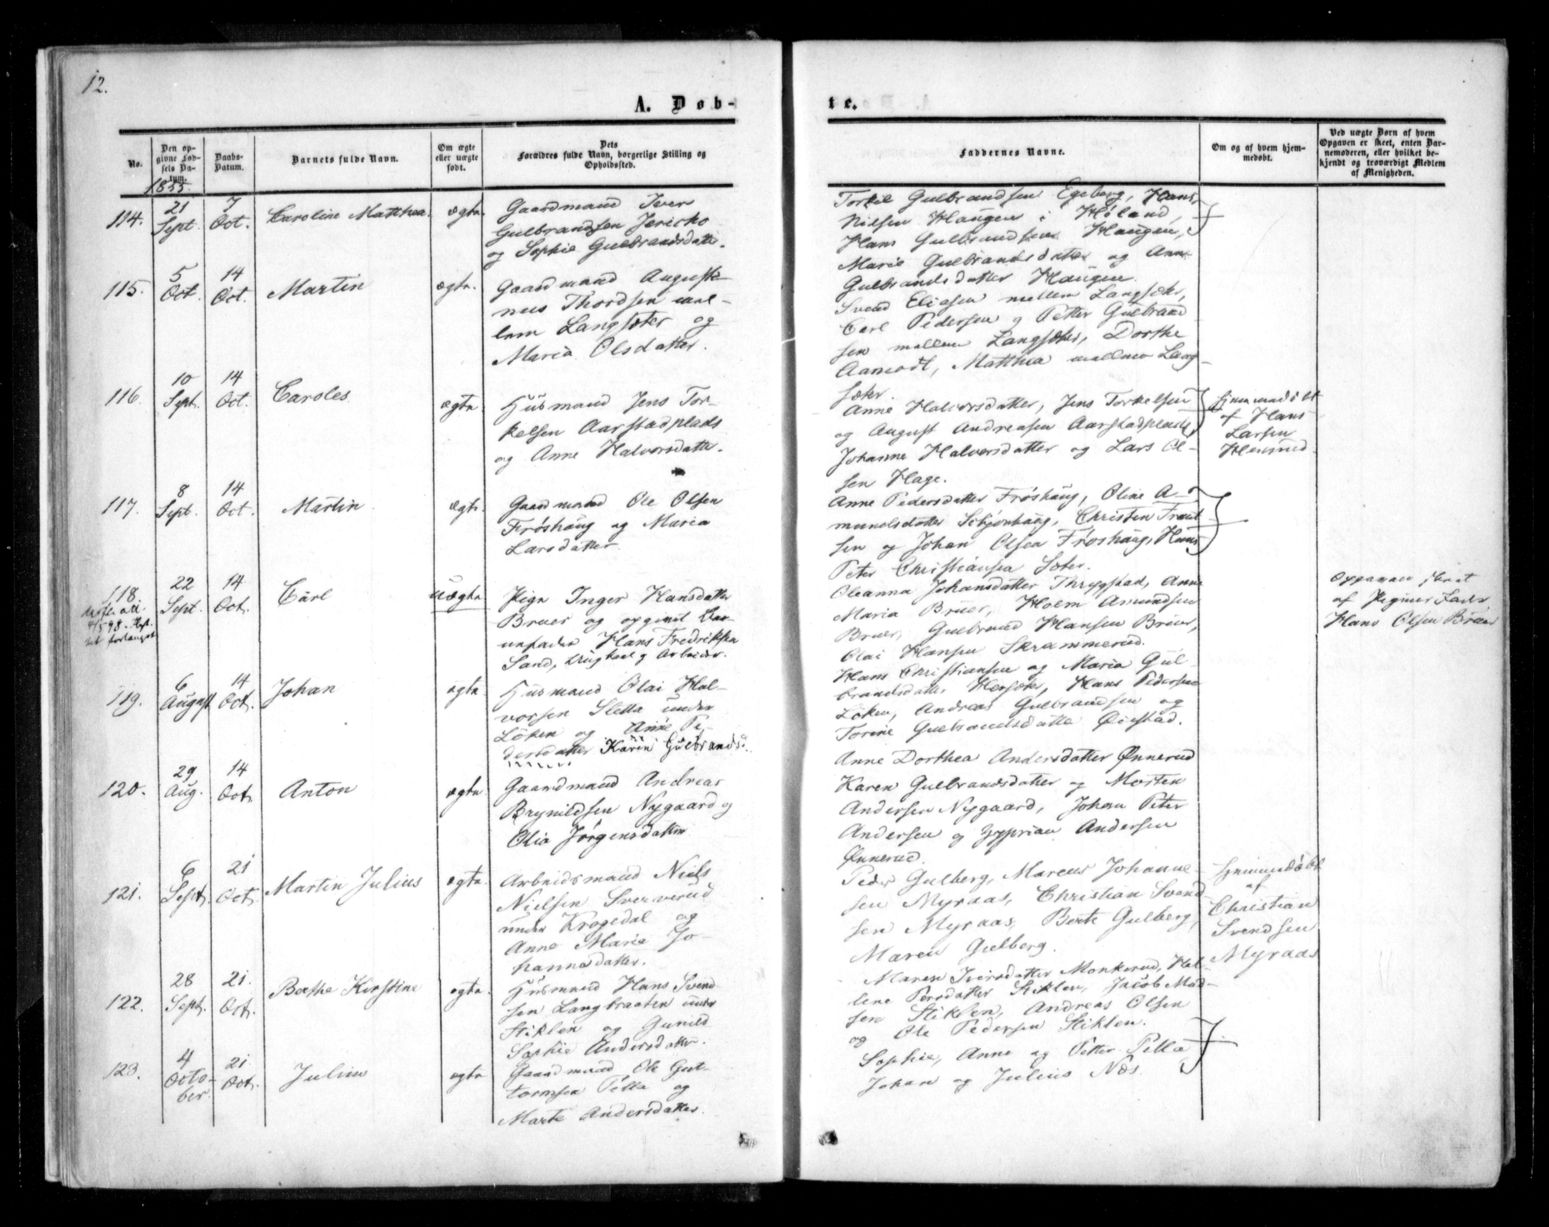 12.
A. Døb-
te.
No.
Den opgivne Fødsels Datum.
Daabs-Datum.
Barnets fulde Navn.
Om ægte eller uægte født.
Dets Forældres fulde Navn, borgerlige Stilling og Opholdssted.
Faddernes Navne.
Om og af hvem hjemmedøbt.
Ved uægte Børn af hvem Opgaven er skeet, enten Barnemoderen, eller hvilket bekjendt og troværdigt Medlem af Menigheden.
1855
114.
21 Sept.
7 Oct.
Caroline Matthea
ægte
Gaardmand Iver
Gulbrandsen Jericho
og Sophie Gulbrandsdatter.
Torkil Gulbrandsen Egeberg, Hans
Nilsen Haugen i Høland,
Hans Gulbrandsen Haugen,
Marie Gulbrandsdatter og Anne
Gulbrandsdatter Haugen.
115.
5 Oct.
14 Oct.
Martin
ægte.
Gaardmand August-
nus Thordsen mel-
lem Langsæter og
Maria Olsdatter.
Svend Eliasen mellem Langsæter,
Carl Pedersen og Petter Gulbrand
sen mellem Langsæter, Dorthe
Aamodt, Matthea mellem Lang-
sæter.
116.
10 Sept.
14 Oct.
Caroles
ægte
Huusmand Jens Tor-
kelsen Aarstadplads
og Anne Halvorsdatter.
Anne Halvorsdatter, Jens Torkelsen
og August Andreasen Aarstadplads,
Johanne Halvorsdatter og Lars Ol-
sen Hage.
Hjemmedøbt
af Hans
Larsen
117.
8 Sept.
14 Oct.
Martin
ægte.
Gaardmand Ole Olsen
Frøshaug og Maria
Larsdatter
Anne Pedersdatter Frøshaug, Oline A-
mundsdatter Schjønhaug, Christen
sen og Johan Olsen Frøshaug, Hans
Peter Christiansen Sæter.
118.
22 Sept.
14 Oct.
Carl
uægte
Pige Inger Hansdatter
Bruer og opgivet Bar-
nefader Hans Fredriksen
Sand, Ungkarl og Arbeider.
Oleanna Johansdatter Thrygstad, Anne
Maria Bruer, Holm Amundsen
Bruer, Gulbrand Hansen Bruer,
Olai Hansen Skrammerud.
Opgaven skeet
af Pigens Fader
Hans Olsen Bruer
119.
6 August
14 Oct.
Johan
ægte
Huusmand Olai Hal-
vorsen Sletta under
Løken og Anne Pe-
dersdatter Karen Gulbrandsd.
Hans Christiansen og Maria Gul-
brandsdatter Hersæter, Hans Pedersen
Løken, Andreas Gulbrandsen og
Torine Gulbrandsdatter Øiestad.
120.
29 Aug.
14 Oct.
Anton
ægte
Gaardmand Andreas
Brynildsen Nygaard og
Olia Jørgensdatter
Anne Dorthea Andersdatter Ønnerud
Karen Gulbrandsdatter og Morten
Andersen Nygaard, Johan Peter
Andersen og Zyprian Andersen
Ønnerud.
121.
6 Sept.
21 Oct.
Martin Julius
ægte.
Arbeidsmand Niels
Nielsen Sververud
under Krogedal og
Anne Maria Jo-
hannesdatter.
Peder Gulberg, Marcus Johanne-
sen Myraas, Christian Svend
sen Myraas, Berte Gulberg,
Maren Gulberg.
Hjemmedøbt
af
Christian
Svendsen
Myraas
122.
28 Sept.
21. Oct.
Berthe Kirstine
ægte.
Huusmand Hans Svend
sen Langbraaten under
Stiklen og Gunild
Sophie Andersdatter.
Maren Iversdatter Monkerud, Hel-
lene Persdatter Stiklen, Jacob Mad-
sen Stiklen, Andreas Olsen
og Ole Pedersen Stiklen.
123.
4 Octo-
ber
21 Oct.
Julius
ægte
Gaardmand Ole Gut-
tormsen Pella og
Marte Andersdatter.
Sophie, Anne og Petter Pella,
Johan og Julius Næs.